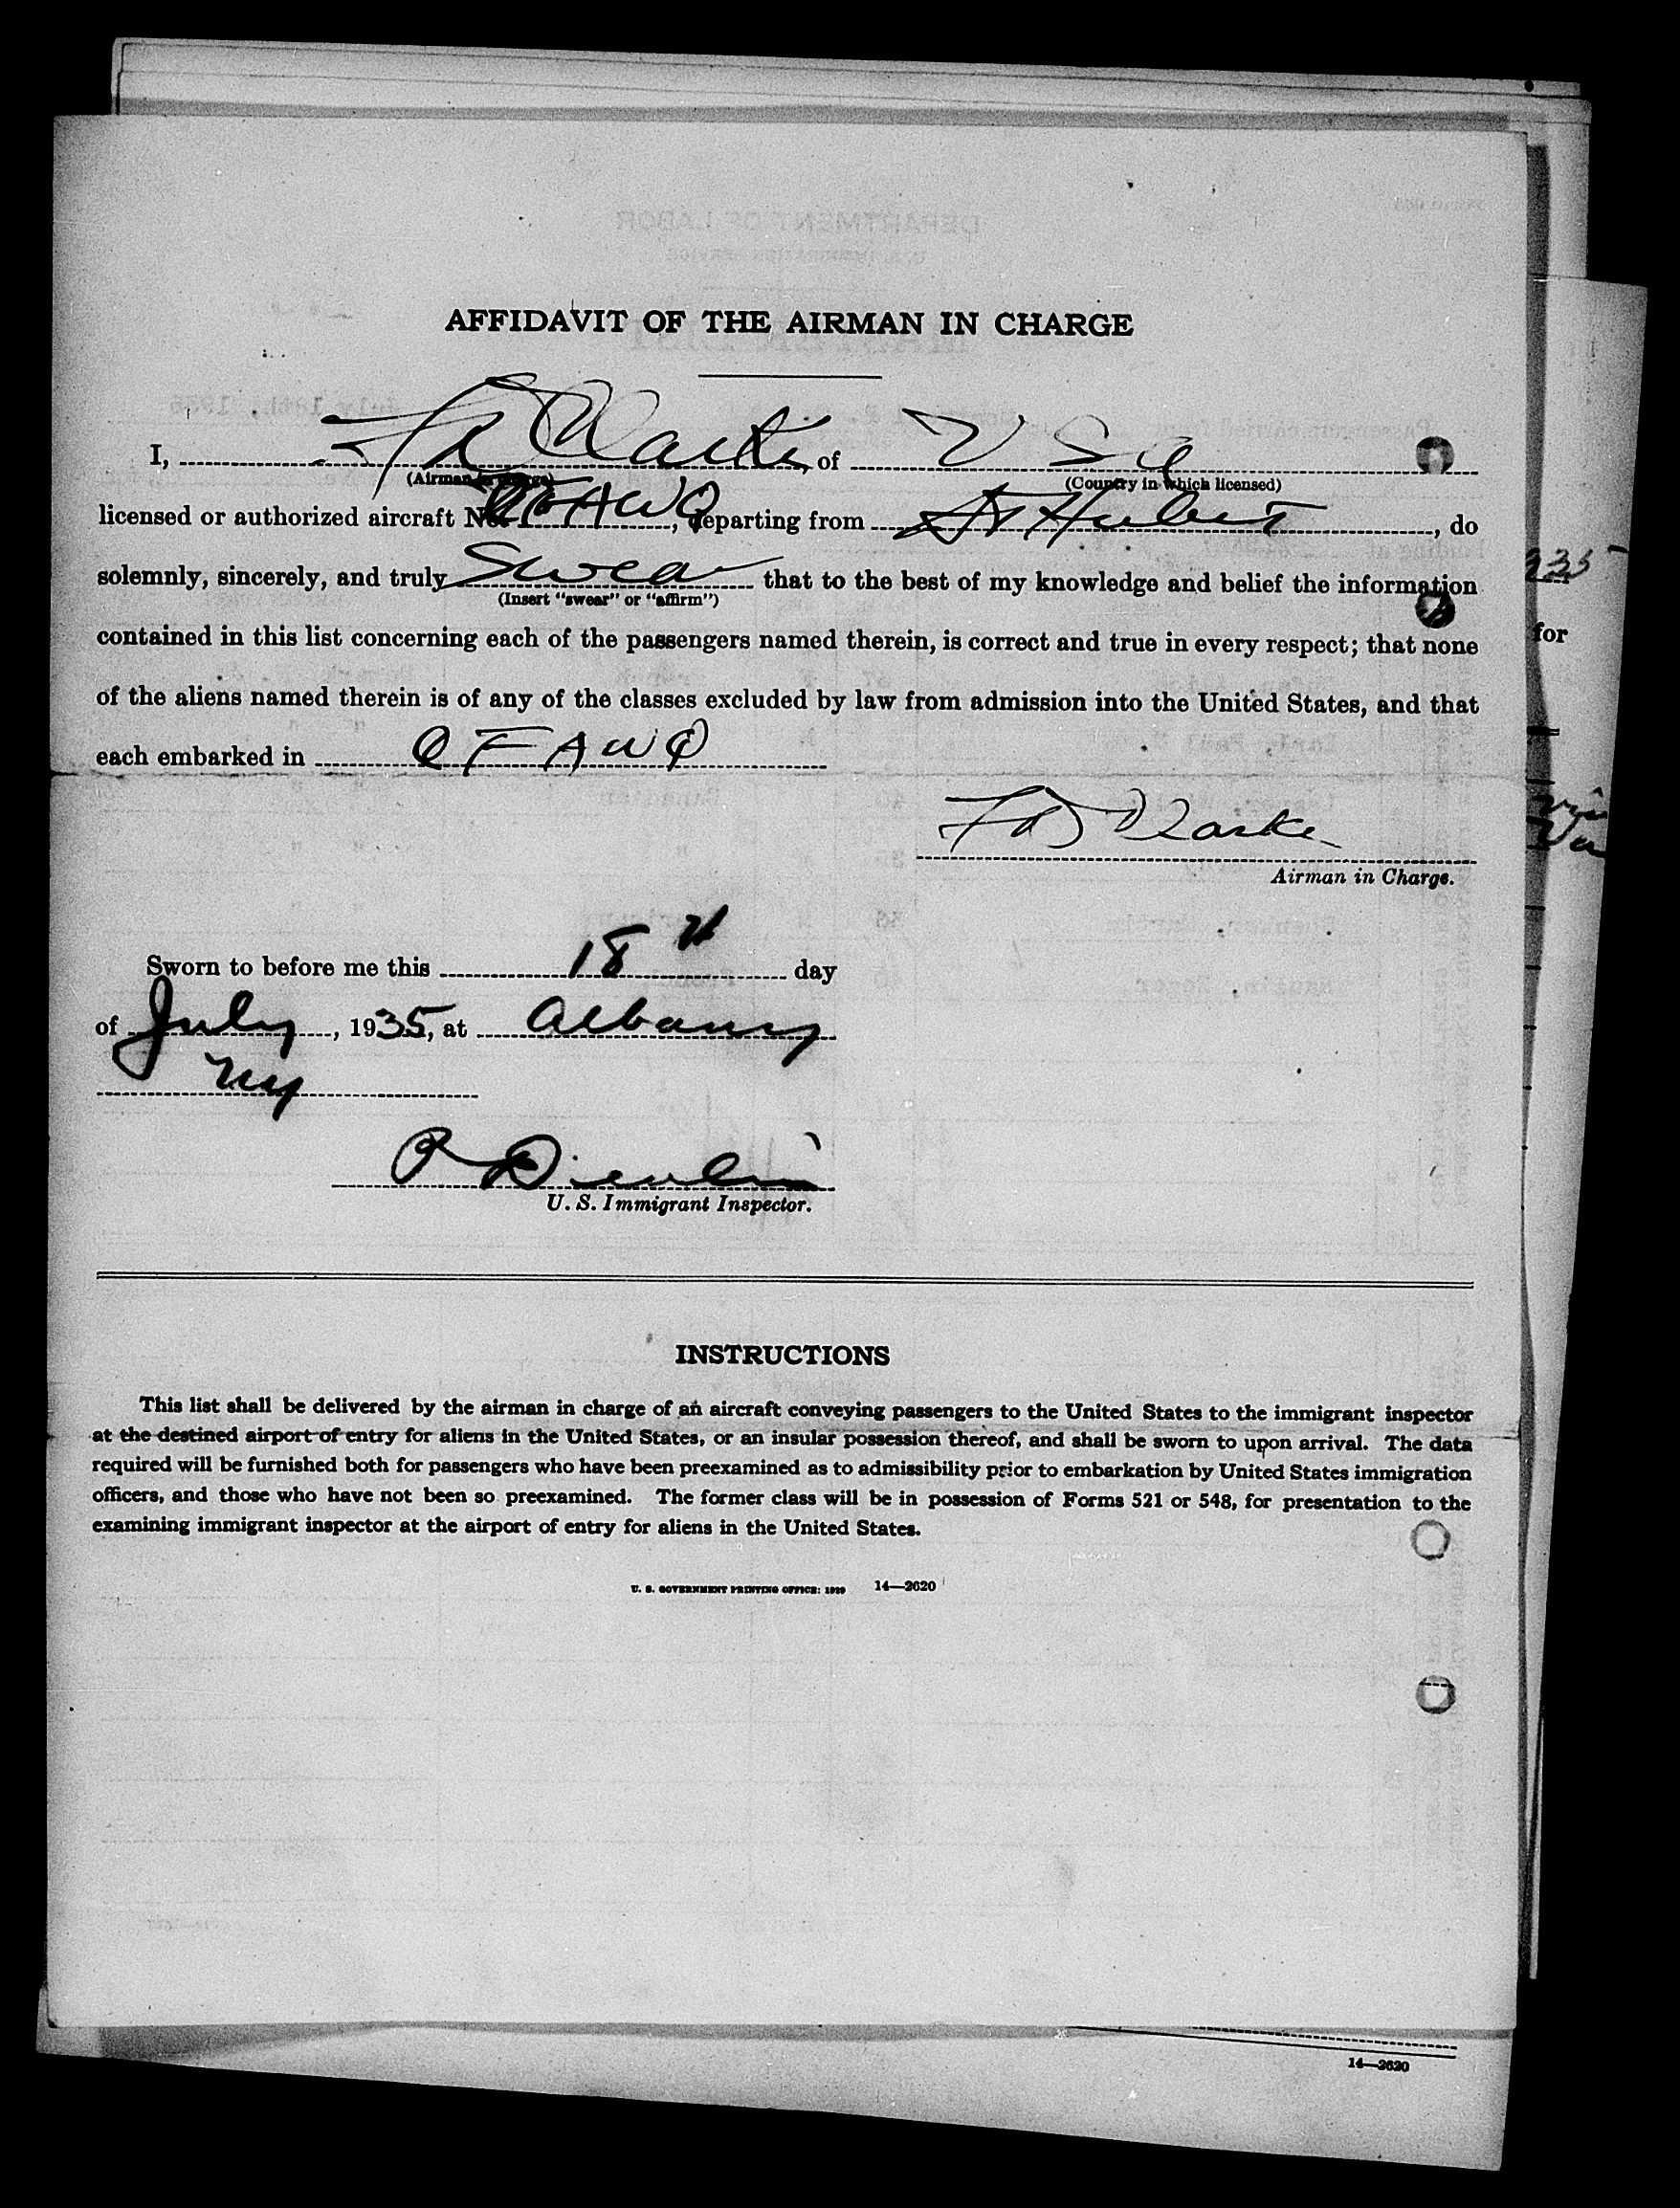 AFFIDAVIT OF THE AIRMAN IN CHARGE
I, Clarke, of U S A
(Airman in charge) (Country in which licensed)
licensed or authorized aircraft No. CFAWQ, departing from St Hubert, do
solemnly, sincerely, and truly Swear that to the best of my knowledge and belief the information
(Insert "swear" or "affirm")
contained in this list concerning each of the passengers named therein, is correct and true in every respect; that none
of the aliens named therein is of any of the classes excluded by law from admission into the United States, and that
each embarked in CFAWQ
Clarke
Airman in Charge.
Sworn to before me this 18th day
of July, 1935, at Albany
NY
U. S. Immigrant Inspector.
INSTRUCTIONS
This list shall be delivered by the airman in charge of an aircraft conveying passengers to the United States to the immigrant inspector
at the destined airport of entry for aliens in the United States, or an insular possession thereof, and shall be sworn to upon arrival. The data
required will be furnished both for passengers who have been preexamined as to admissibility prior to embarkation by United States immigration
officers, and those who have not been so preexamined. The former class will be in possession of Forms 521 or 548, for presentation to the
examining immigrant inspector at the airport of entry for aliens in the United States.
U. S. GOVERNMENT PRINTING OFFICE: 1929 14—2620
935
for
14—2620